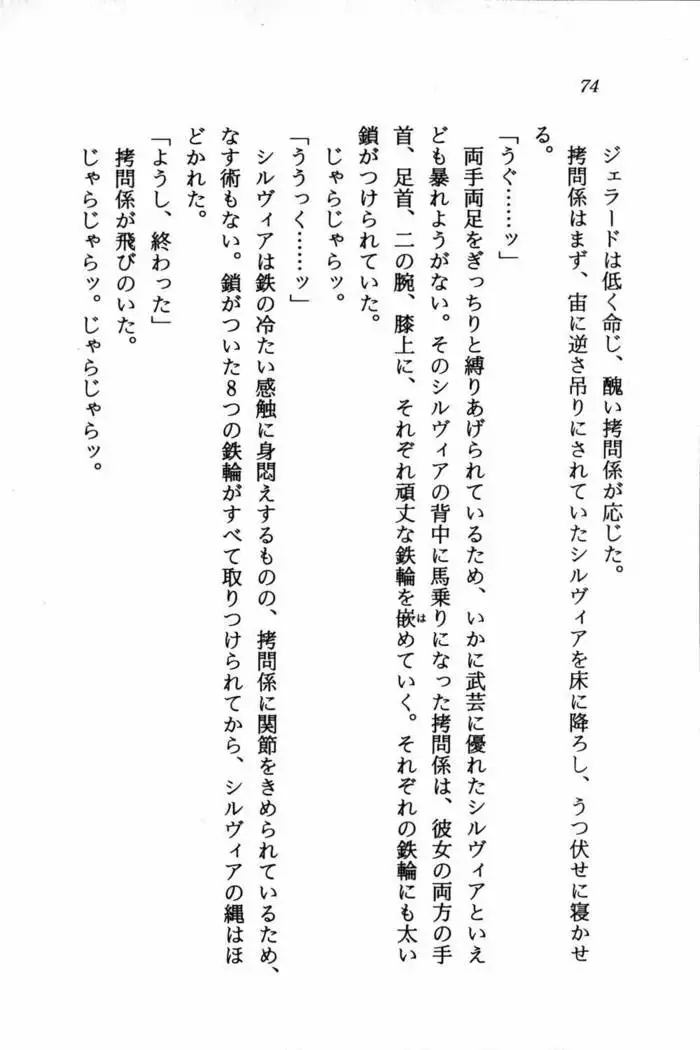 74
ジェラードは低く命じ、醜い拷問係が応じた。
拷問係はまず、宙に逆さ吊りにされていたシルヴィアを床に降ろし、うつ伏せに寝かせ
る。
「うぐ……ッ」
両手両足をぎっちりと縛りあげられているため、いかに武芸に優れたシルヴィアといえ
ども暴れようがない。そのシルヴィアの背中に馬乗りになった拷問係は、彼女の両方の手
首、足首、二の腕、膝上に、それぞれ頑丈な鉄輪を嵌はめていく。それぞれの鉄輪にも太い
鎖がつけられていた。
じゃらじゃらッ。
「ううっく……ッ」
シルヴィアは鉄の冷たい感触に身悶えするものの、拷問係に関節をきめられているため、
なす術もない。鎖がついた8つの鉄輪がすべて取りつけられてから、シルヴィアの縄はほ
どかれた。
「ようし、終わった」
拷問係が飛びのいた。
じゃらじゃらッ。じゃらじゃらッ。